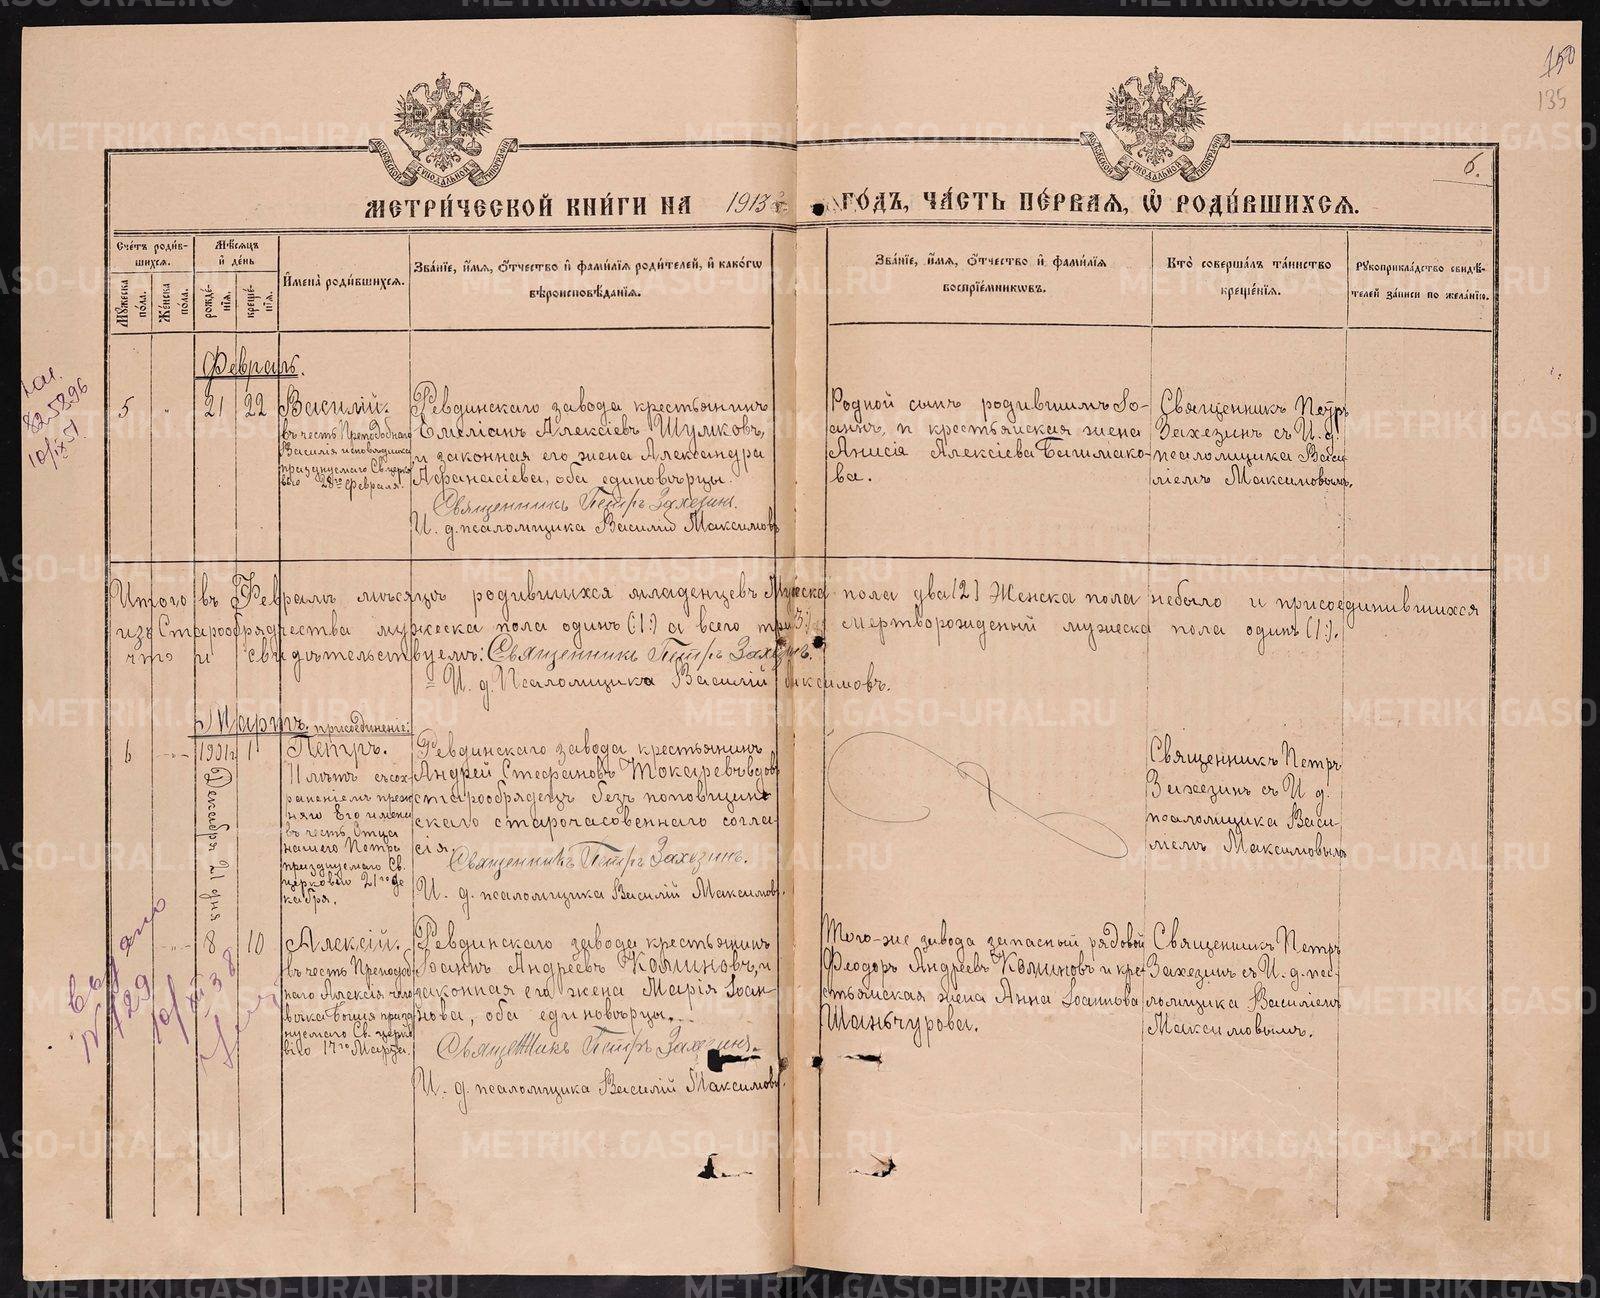 150
135
6.
МЕТРИ́ЧЕСКОЙ КНИ́ГИ НА 1913 ГО́ДЪ, ЧА́СТЬ ПЕ́РВАЯ, Ѡ҆ РОДИ́ВШИХСЯ.
Сче́тъ роди́в-
шихся.
Мѹ́жеска по́ла.
Же́нска по́ла.
Мѣ́сяцъ и҆ де́нь
рожде́-
нїѧ.
креще́-
нїѧ.
И҆мена̀ роди́вшихся.
Зва́нїе, и҆́мѧ, о҆́тчество и҆ фами́лїѧ роди́телей, и҆ како́гѡ
вѣроисповѣ́данїѧ.
Зва́нїе, и҆́мѧ, о҆́тчество и҆ фами́лїѧ
воспрїе́мникѡвъ.
Кто̀ соверша́лъ та́инство
креще́нїѧ.
Рукоприкла́дство свидѣ́-
телей за́писи по жела́нїю.
Февраль.
825896
10/IX 51
5
"
21
22
Василій.
въ честь Преподобнаго
Василія исповѣдника
празднуемаго Св. церко
вію 28го Февраля.
Ревдинскаго завода крестьянинъ
Емеліанъ Алексіевъ Шумковъ,
и законная его жена Александра
Афанасіева, оба единовѣрцы.
Священникъ Петръ Захезинъ.
И. д. псаломщика Василій Максимовъ
Родной сынъ родившимъ Іо-
аннъ, и крестьянская жена
Анисія Алексіева Башмако-
ва.
Священникъ Петръ
Захезинъ съ И. д.
псаломщика Васи-
ліемъ Максимовымъ.
Итого въ Февралѣ мѣсяцѣ родившихся младенцевъ Мужеска пола два (2) Женска пола небыло и присоединившихся
изъ Старообрядчества мужеска пола одинъ (1:) а всего три (3:) Мертворожденый мужеска пола одинъ (1:).
что и свидѣтельствуемъ: Священникъ Петръ Захезинъ.
И. д. Псаломщика Василій Максимовъ.
Мартъ. присоединеніе:
6
1931г
Декабря 21 дня
1
Петръ.
ранен­іемъ преж
няго Его имени
въ честь Отца
нашего Петра
празднуемаго Св.
церковію 21го Де
кабря.
Ревдинскаго завода крестьянинъ
Андрей Стефановъ Токаревъ вдовъ
старообрядецъ безъ поповщин
скаго старочасовеннаго согла-
сія.
Священникъ Петръ Захезинъ.
И. д. псаломщика Василій Максимовъ.
Священникъ Петръ
Захезинъ съ И д.
псаломщика Васи-
ліемъ Максимовымъ
Выдано
№ 729
10/XII 38
8
10
Алексій.
въ честь Преподоб
наго Алексія чело
вѣка Божія празд
нуемаго Св. церко
вію 17го Марта.
Ревдинскаго завода крестьянинъ
Іоаннъ Андреевъ Калиновъ, и
законная его жена Марія Іоан-
нова, оба единовѣрцы.
Священникъ Петръ Захезинъ.
И. д. псаломщика Василій Максимовъ.
Того-же завода запасный рядовой
Феодоръ Андреевъ Калиновъ и кре-
стьянская жена Анна Іоаннова
Шаньгурова.
Священникъ Петръ
Захезинъ съ И. д. пса-
ломщика Василіемъ
Максимовымъ.
METRIKI.GASO-URAL.RU